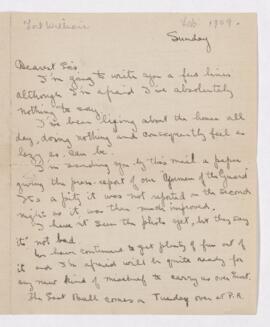 Fort William
Feb 1909.
Sunday
Dearest Sis
I'm going to write you a few lines
although I'm afraid I've absolutely
nothing to say
I've been ligging about the house all
day, doing nothing and consequently feel as
lazy as can be.
I'm sending you by this mail a paper
giving the press-report of our Yeomen of the Guard
It's a pity it was not reported on the second
night as it was then much improved.
I have not seen the photo yet, but they say
it's not bad.
We have continued to get plenty of fun out of
it and I'm afraid will be quite ready for
any new kind of mischief to carry us over Lent.
The Ball comes on Tuesday over at P.A.